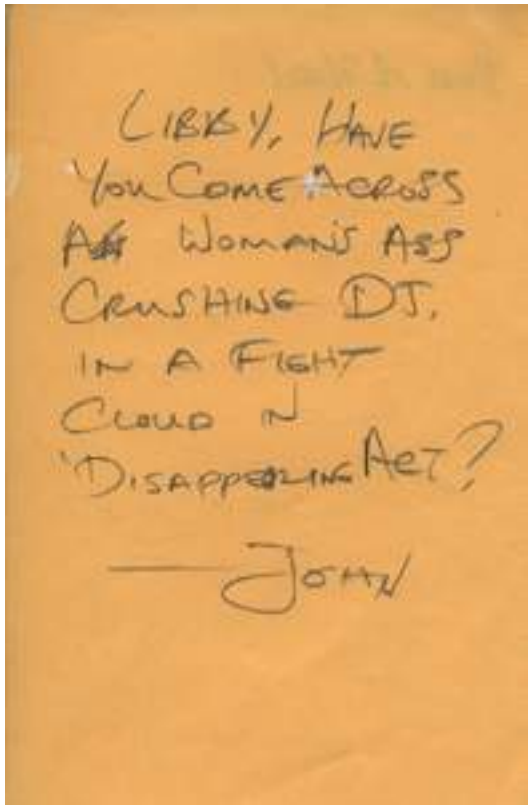 LIBBY, HAVE
YOU COME ACROSS
A WOMAN'S ASS
CRUSHING DJ.
IN A FIGHT
CLOUD IN
'DISAPPEARING ACT?
—JOHN